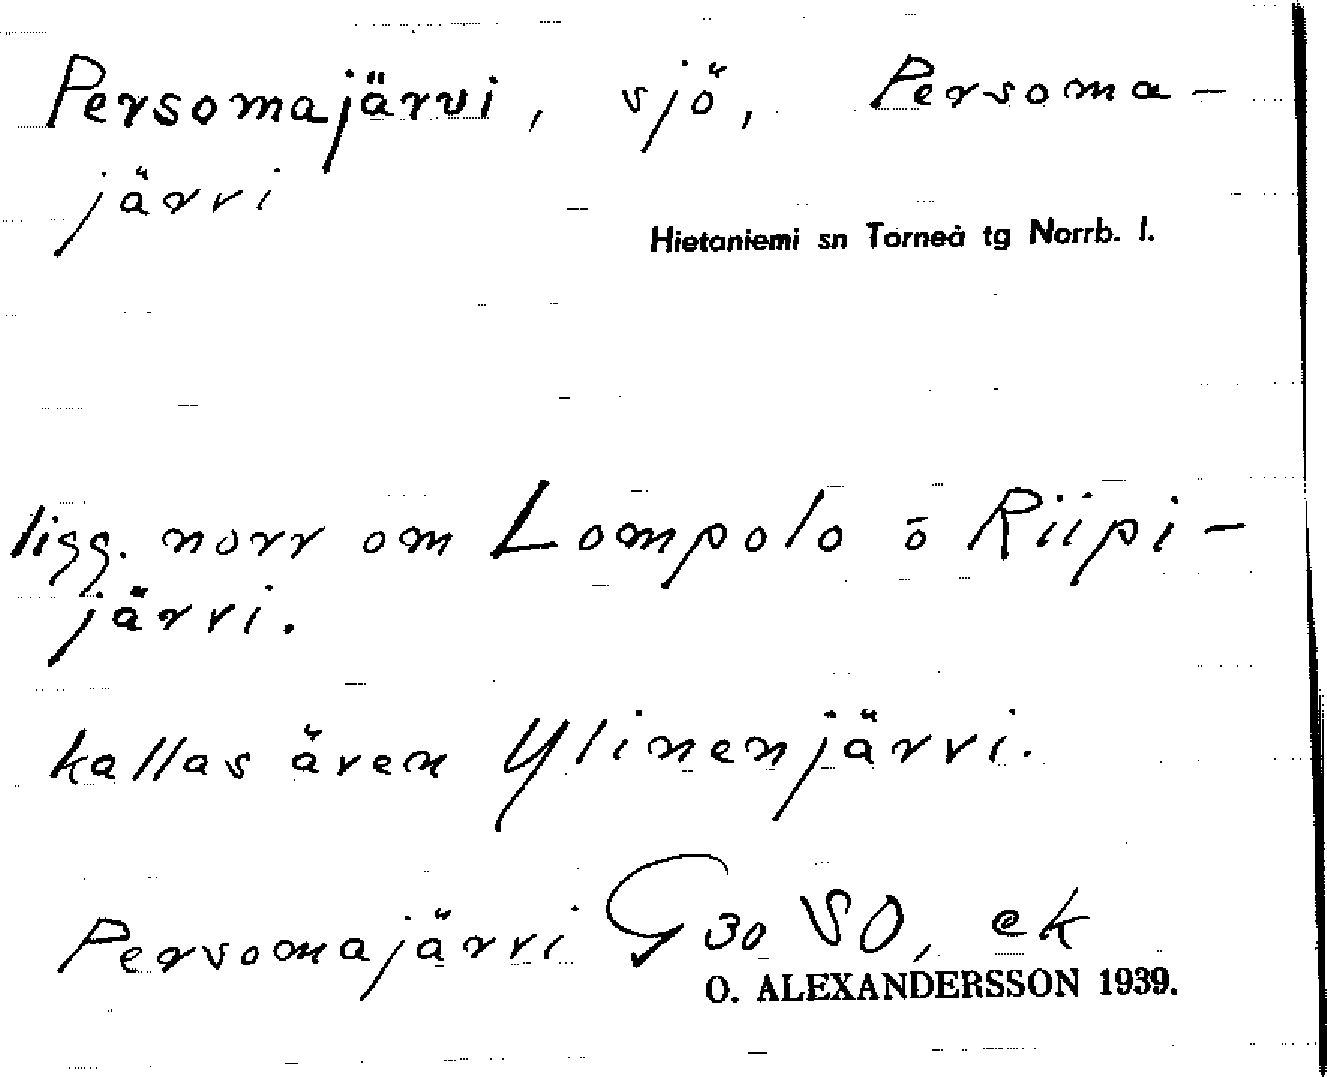 Persomajärvi, sjö, Persoma-
järvi
Hietaniemi sn Torneå tg Norrb. l.
ligg. norr om Lompolo o Riipi-
järvi.
kallas även Ylinenjärvi.
Persomajärvi G 30 SO, ek
O. ALEXANDERSSON 1939.